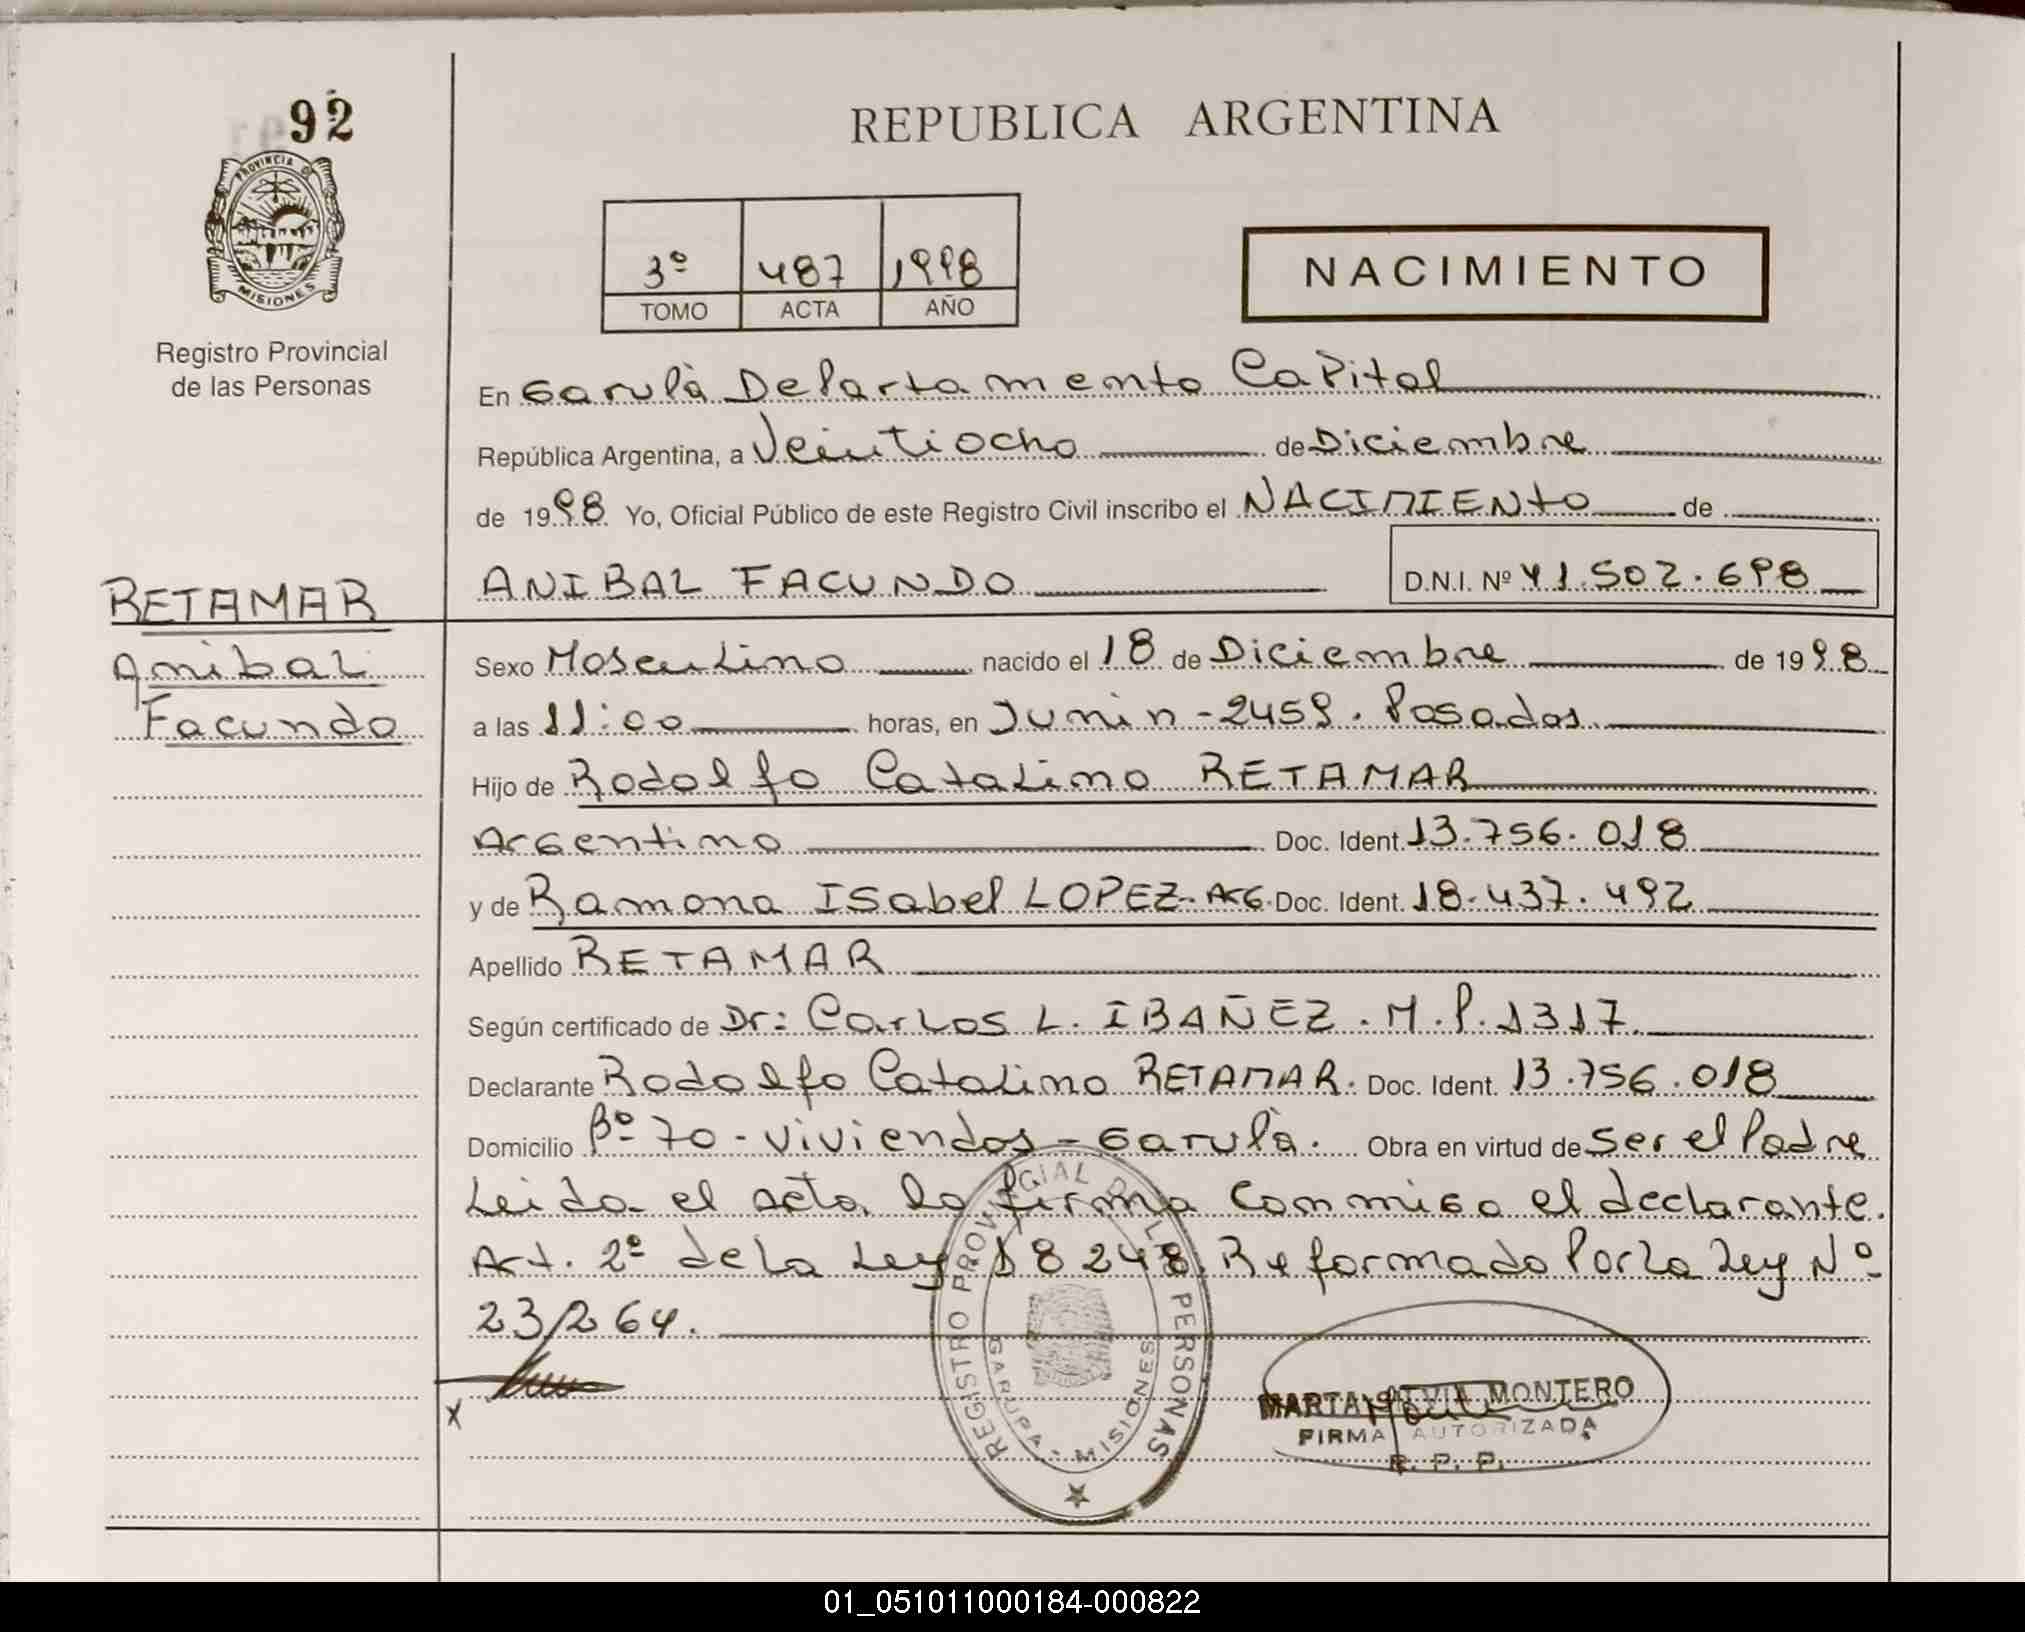 92
PROVINCIA D
MISIONES
Registro Provincial
de las Personas
REPUBLICA ARGENTINA
3º 487 1998
TOMO ACTA AÑO
NACIMIENTO
En Garupá Departamento Capital
República Argentina, a Veintiocho de Diciembre
de 1998 Yo, Oficial Público de este Registro Civil inscribo el NACIMIENTO de
ANIBAL FACUNDO D.N.I. Nº 41.502.698
RETAMAR
Anibal
Facundo
Sexo Masculino nacido el 18 de Diciembre de 1998
a las 11:00 horas, en Junin - 2459. Posadas
Hijo de Rodolfo Catalino RETAMAR
Argentino Doc. Ident. 13.756.018
y de Ramona ISabel LOPEZ- Arg. Doc. Ident. 18.437.492
Apellido RETAMAR
Según certificado de Dr: Carlos L. IBAÑEZ. M.P. 1317
Declarante Rodolfo Catalino RETAMAR. Doc. Ident. 13.756.018
Domicilio Bº 70 - Viviendas - Garupá. Obra en virtud de Ser el Padre
Leida el acta la firma Commigo el declarante.
Art. 2º de la Ley 18248 Reformado Por La Ley Nº
23/264.
X
REGISTRO PROVINCIAL DE LAS PERSONAS
GARUPA - MISIONES
MARTA SILVIA MONTERO
FIRMA AUTORIZADA
R. P. P.
01_051011000184-000822